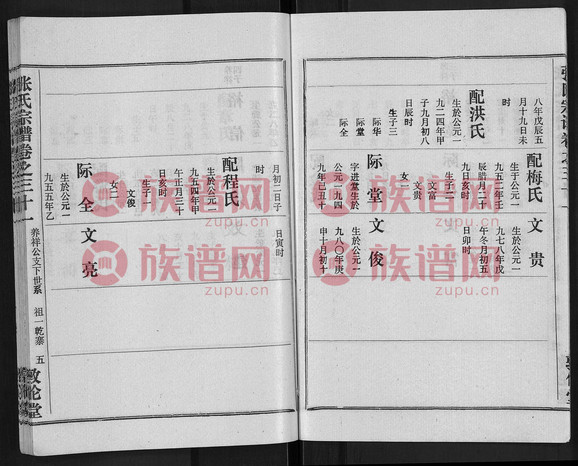 张氏宗谱卷之三十一
八年戊辰五
月十九日未
时
配洪氏
生於公元一
九二四年甲
子九月初八
日辰时
生子三
际华
际堂
际全
配梅氏
生于公元一
九五二年壬
辰腊月二十
日亥时
生子二
文富
文贵
际堂
字进堂生於
公元一九四
九年己丑十
文贵
生於公元一
九七八年戊
午冬月初五
日卯时
文俊
生於公元一
九八〇年庚
申十月初十
日寅时
月初二日子
时
配程氏
生於公元一
九五四年甲
午正月三十
日亥时
生子一
文俊
女二
际全
生於公元一
九五五年乙
文亮
张氏宗谱卷之三十一
养祥公支下世系
祖一乾寨
五
敦伦堂
族谱网
zupu.cn
族谱网
zupu.cn